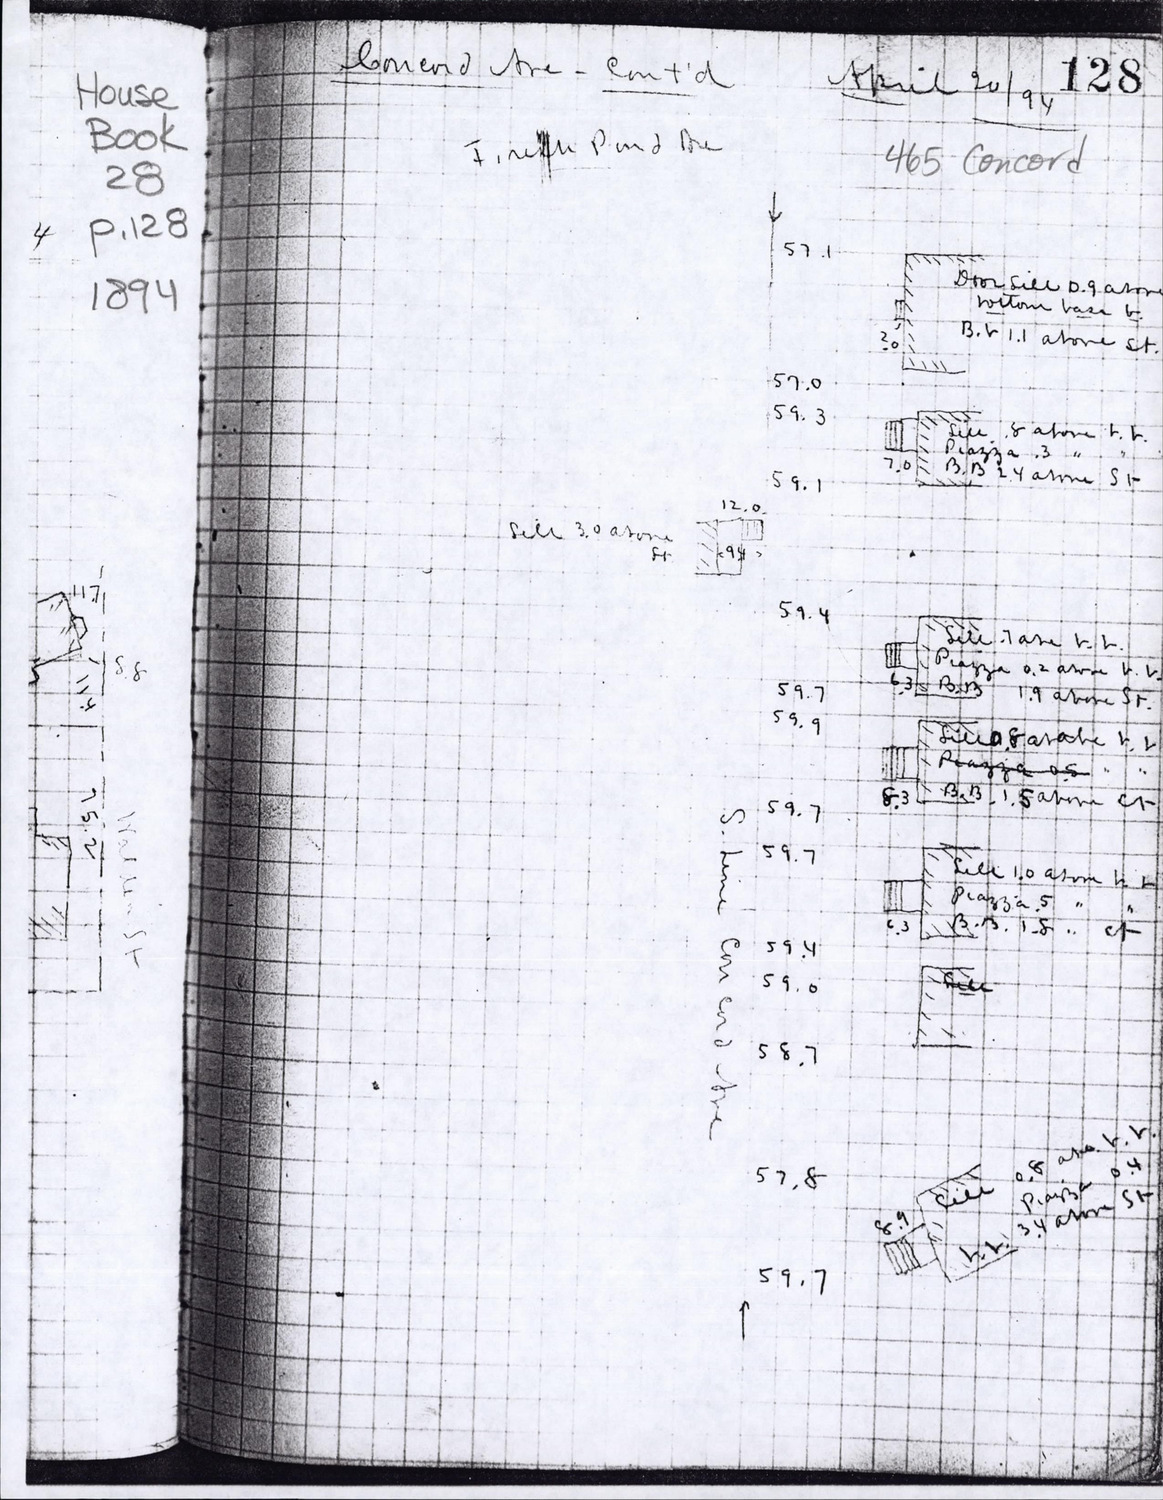 House
Book
28
p.128
1894
4
Concord Ave - Cont'd
April 20/94
128
Pond Ave
465 Concord
57.1
Door Sill 0.9 above
bottom base b.
B.b 1.1 above St.
2.0
57.0
59.3
Sill .8 above b.b.
Piazza .3 " "
B.B 2.4 above St
7.0
59.1
12.0
Sill 3.0 above
St
59.4
Sill .7 above b.b.
Piazza 0.2 above b.b.
B.B 1.9 above St.
6.3
59.7
59.9
Sill 0.8 above b.b
Piazza 0.5 " "
B.B. 1.5 above St
8.3
59.7
59.7
Sill 1.0 above b.b
Piazza .5 " "
B.B. 1.8 " St
6.3
59.4
59.0
Sill
58.7
S. Line Concord Ave
57.8
Sill 0.8 above b.b.
Piazza 0.4
b.b. 3.4 above St
8.9
59.7
117
5.8